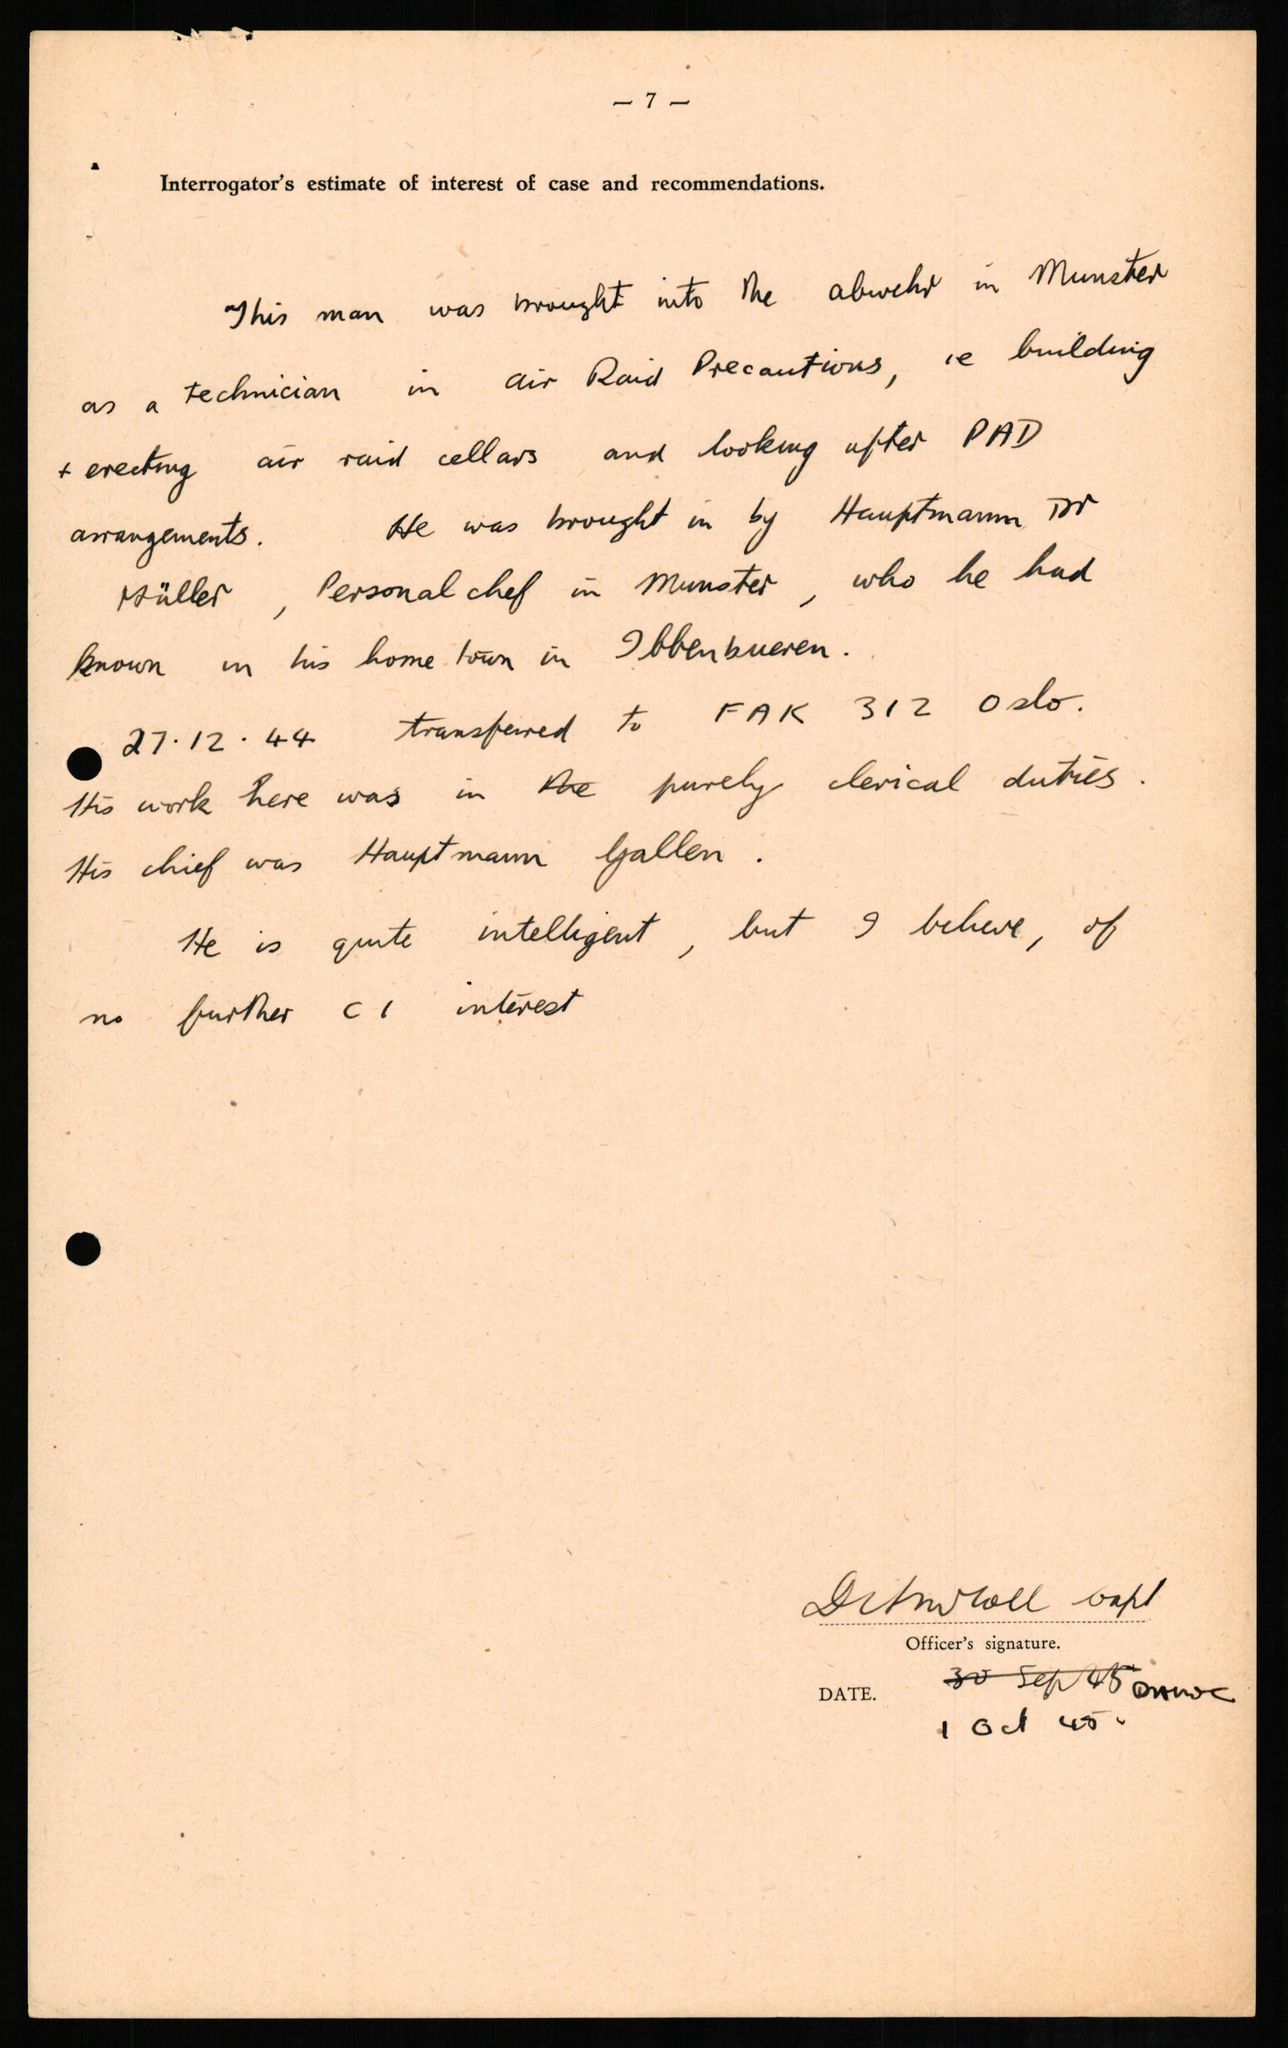 — 7 —
Interrogator's estimate of interest of case and recommendations.
This man was brought into the abwehr in Munster
as a technician in air Raid Precautions, ie building
+ erecting air raid cellars and looking after PAD
arrangements. He was brought in by Hauptmann Dr
Hüller, Personalchef in Munster, who he had
known in his home town in Ibbenbueren.
27.12.44 transferred to FAK 312 Oslo.
His work here was in the purely clerical duties.
His chief was Hauptmann Gallen.
He is quite intelligent, but I believe, of
no further CI interest
Capt
Officer's signature.
DATE. 30 Sep 45
1 Oct 45.